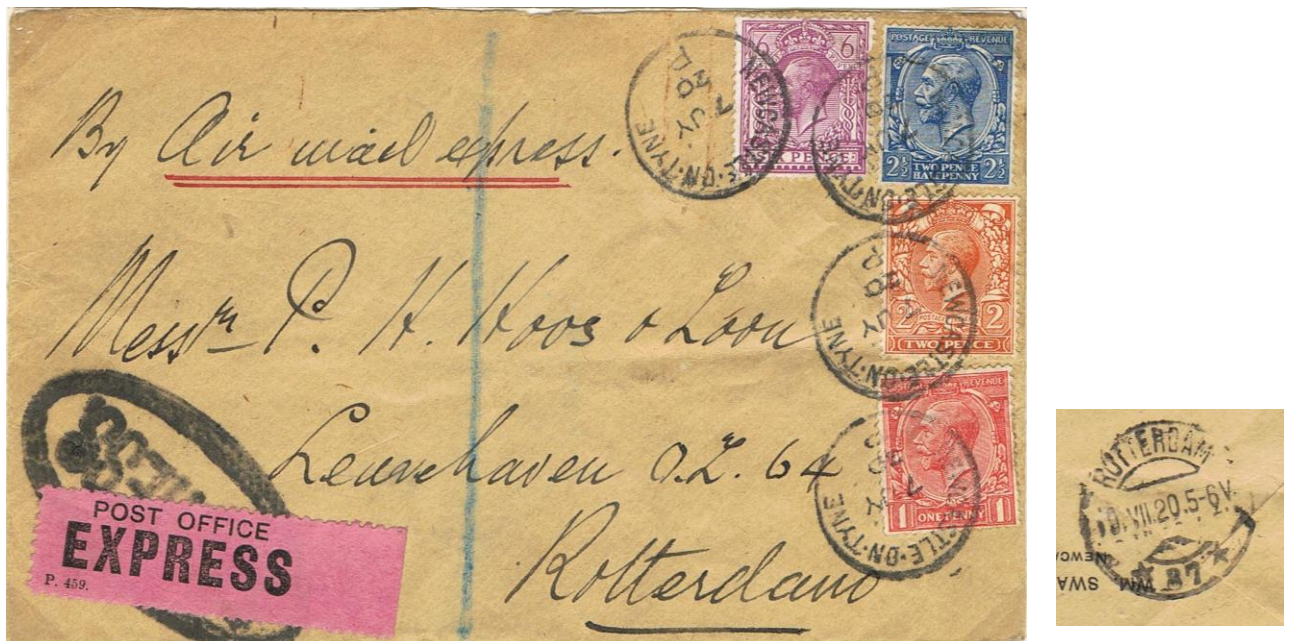 By Air mail express.
Messrs P. H. Hoos & Loon
Leuvehaven O.Z. 64
Rotterdam
POST OFFICE
EXPRESS
P. 459.
6 6
PENCE
POSTAGE REVENUE
TWO PENCE
HALFPENNY
2½ 2½
2 2
POSTAGE
TWO PENCE
POSTAGE REVENUE
1 1
ONE PENNY
NEWCASTLE·ON·TYNE
7 JY
20
NEWCASTLE·ON·TYNE
JY
20
NEWCASTLE·ON·TYNE
7 JY
20
ROTTERDAM
VII.20.5-6V.
* B7 *
NEWCA
WM SWA